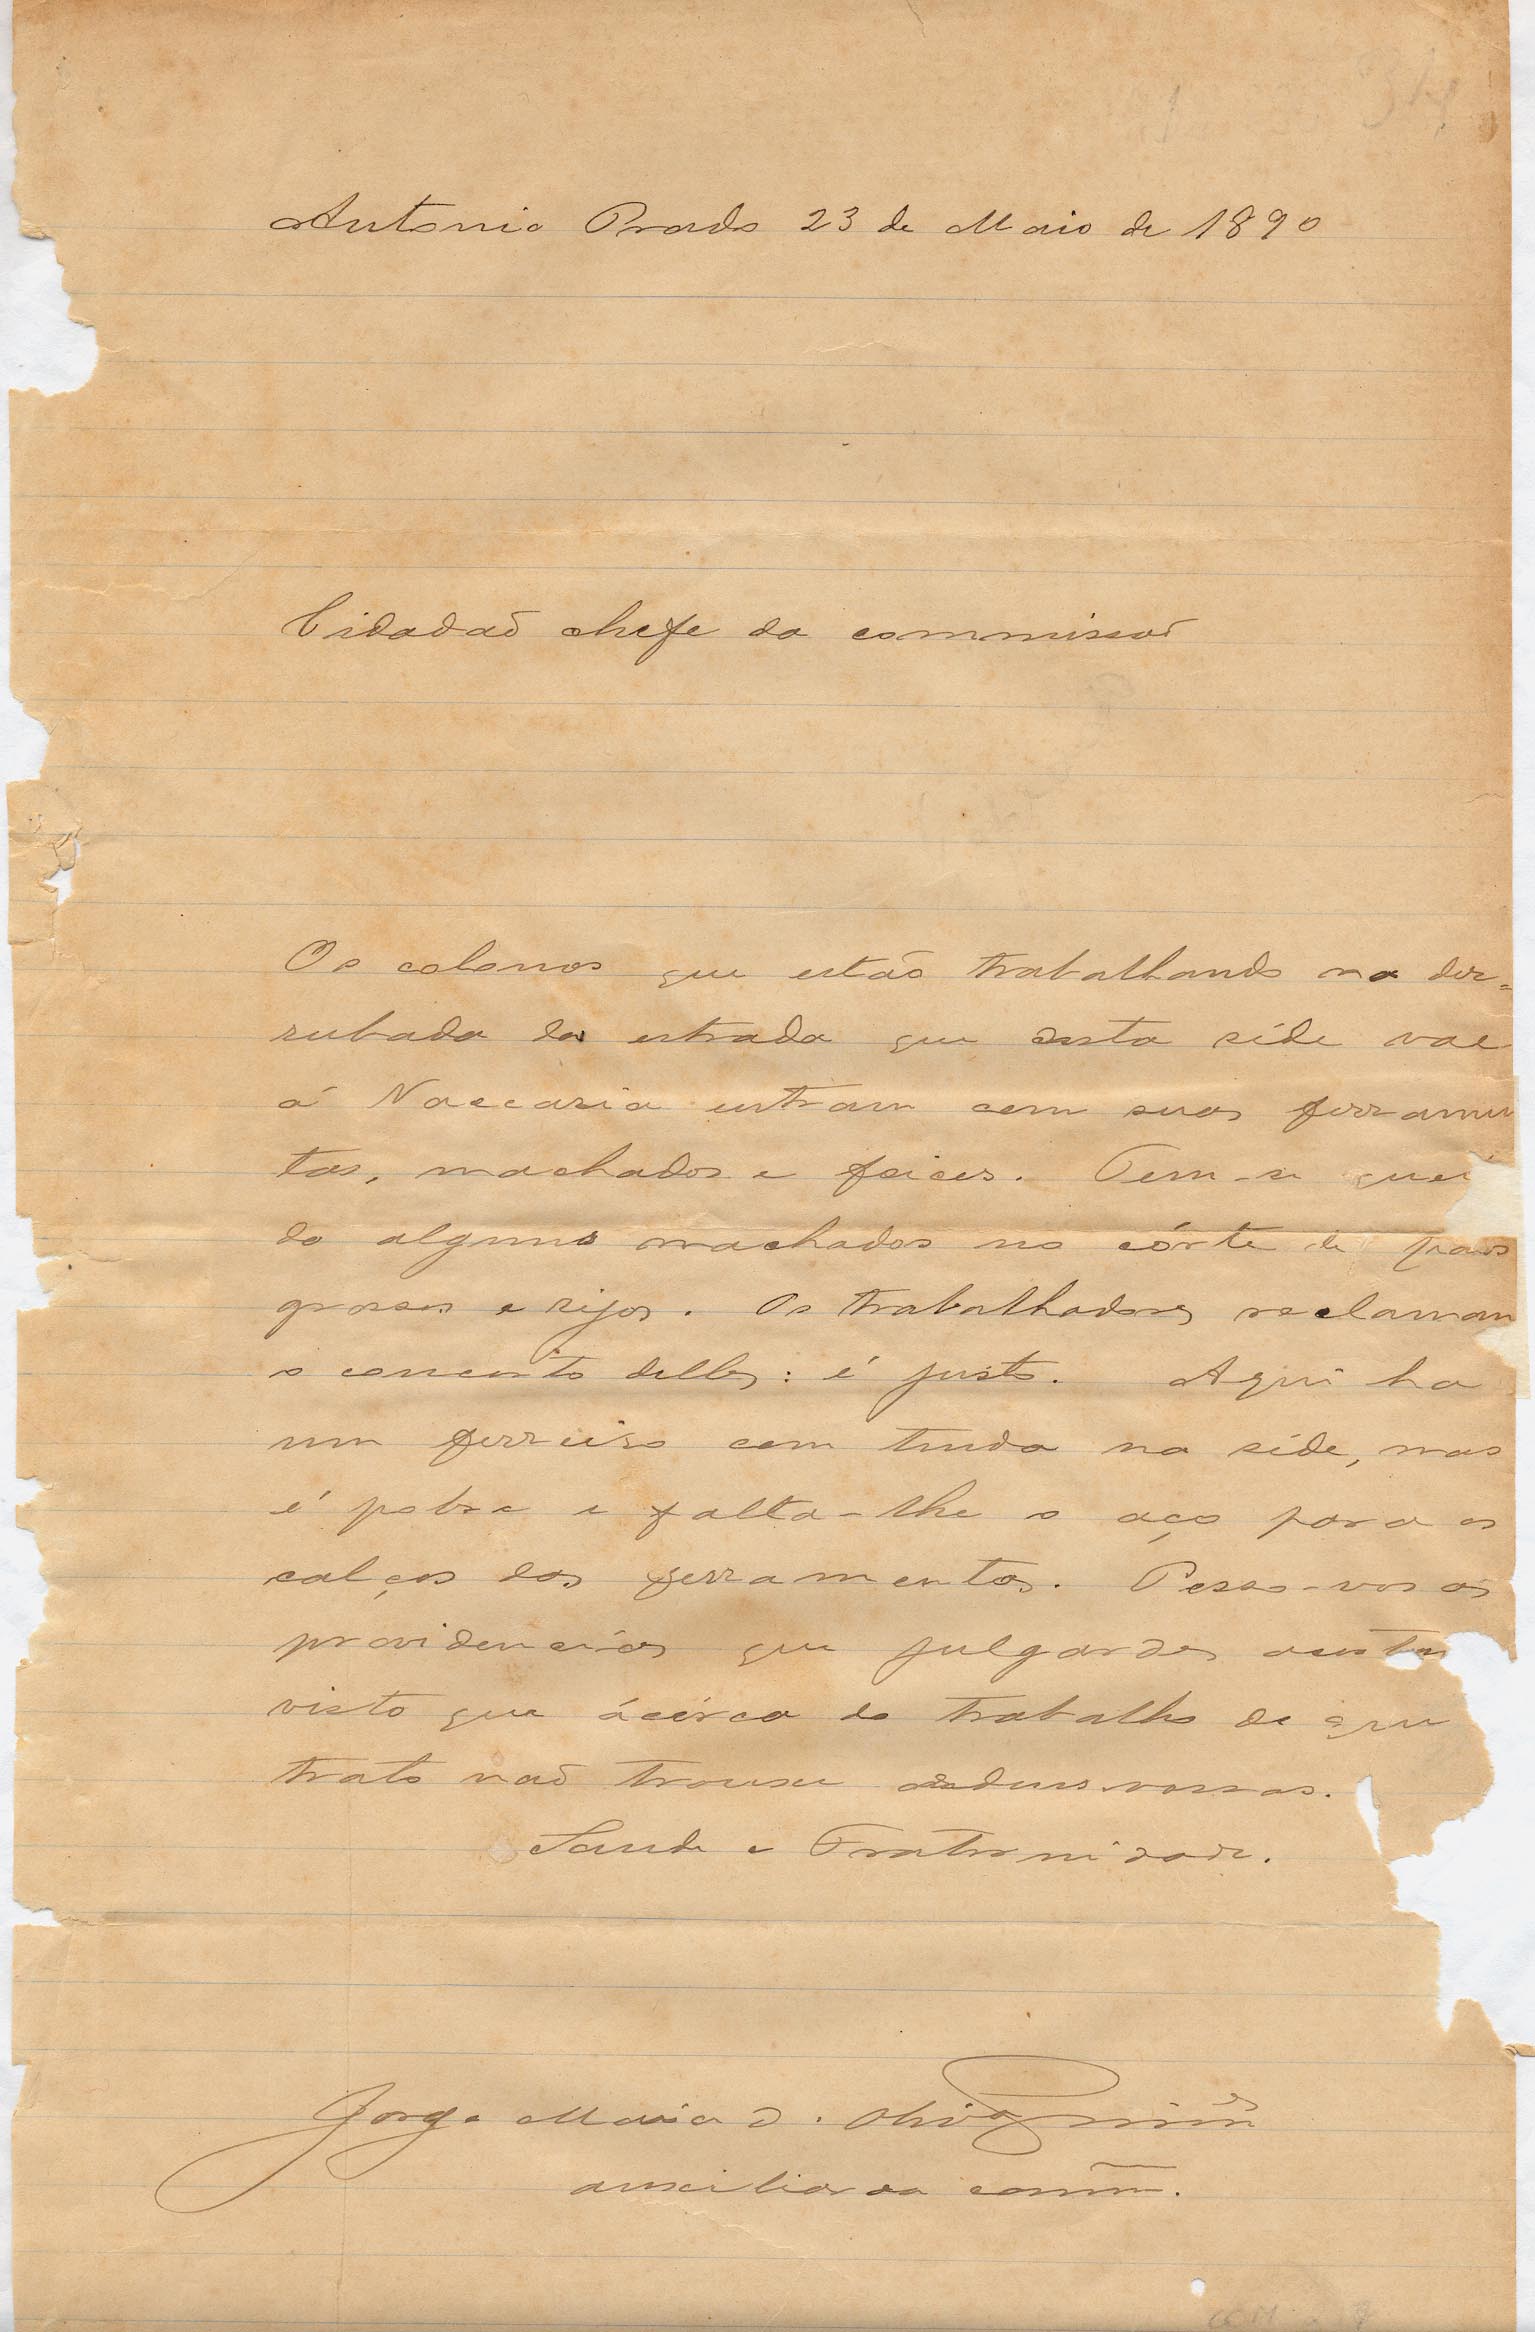 Antonio Prado 23 de Maio de 1890
Cidadaõ chefe da commissaõ
Os colonos que estão trabalhando na der=
rubada da estrada que desta séde vae
á Vaccaria entram com suas ferramen
tas, machados e foices. Tem-se
do alguns machados no córte de paus
grossos e rijos. Os trabalhadores reclamam
o concerto delles: é justo. Aqui ha
um ferreiro com tenda na séde, mas
é pobre e falta-lhe o aço para os
calços das ferramentas. Peço-vos as
providencias que julgardes
visto que ácerca do trabalho de que
trato naõ trouxe ordens vossas.
Saude e Fraternidade.
Jorge Maia d'
auxiliar da comm.